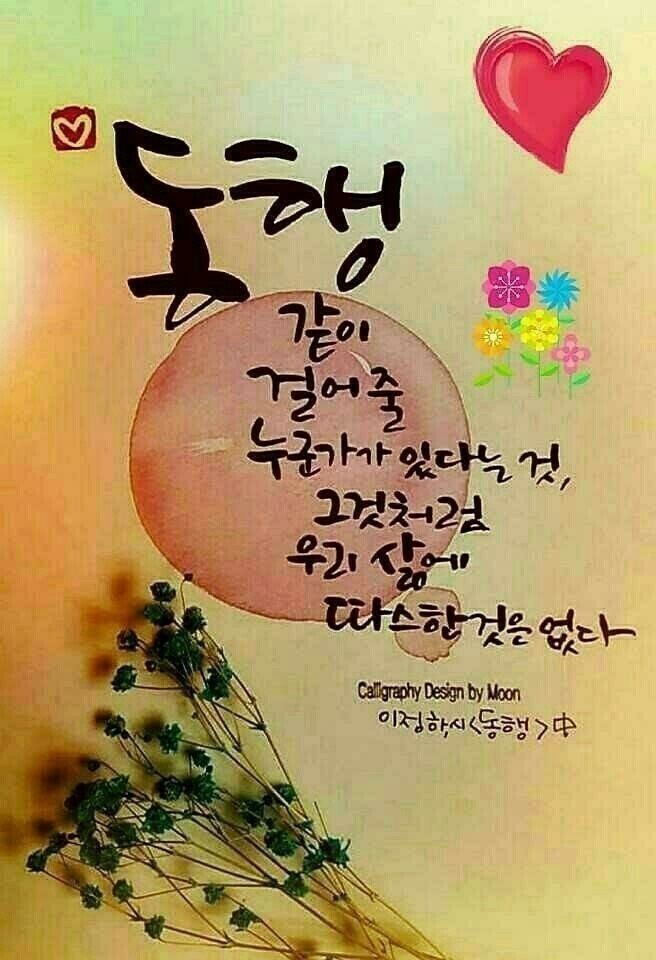 동행
같이
걸어 줄
누군가가 있다는 것,
그것처럼
우리 삶에
따스한 것은 없다
Calligraphy Design by Moon
이정하, 시<동행>中